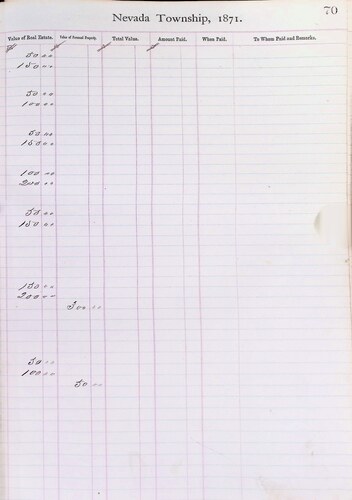 70
Nevada Township, 1871.
Value of Real Estate. Value of Personal Property. Total Value. Amount Paid. When Paid. To Whom Paid and Remarks.
50 00
150 00
50 00
100 00
50 00
150 00
100 00
200 00
50 00
150 00
150 00
200 00
300 00
50 00
100 00
50 00